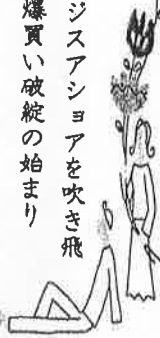 ジスアショアを吹き飛
爆買い破綻の始まり